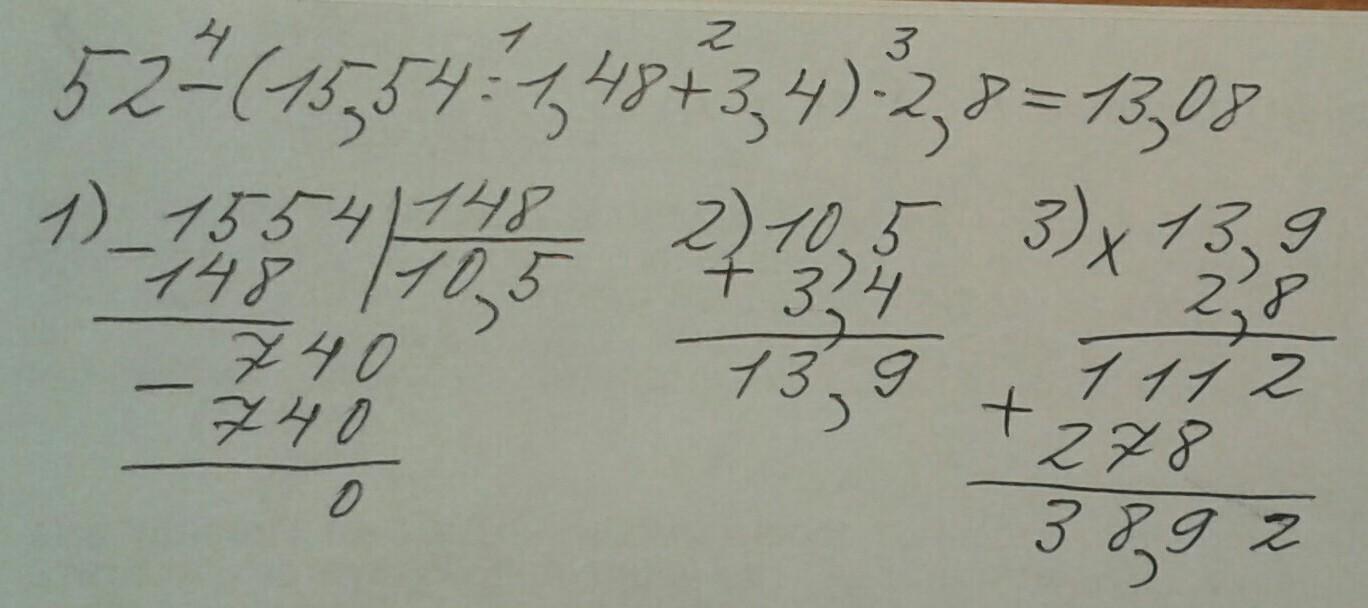 4 1 2 3
52-(15,54:1,48+3,4)·2,8=13,08
1) -1554|148 2) 10,5 3) x 13,9
148 |10,5 + 3,4 2,8
740 13,9 1112
- 740 + 278
0 38,92